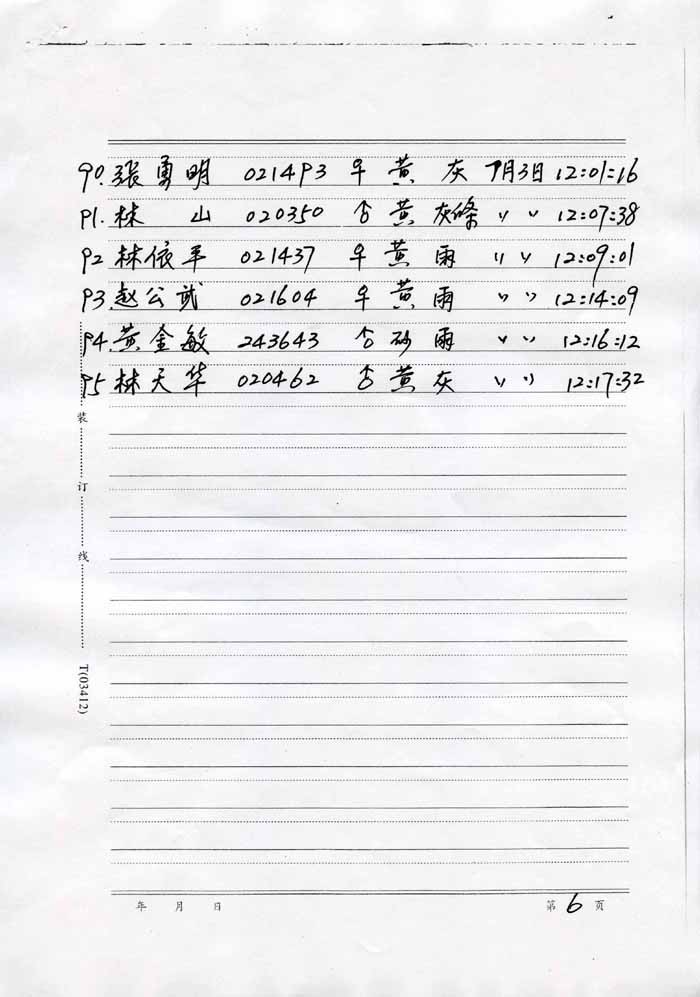 90.張勇明 021493 ♀ 黄 灰 7月3日 12:01:16
91.林 山 020350 ♂ 黄 灰條 〃 〃 12:07:38
92 林依平 021437 ♀ 黄 雨 〃 〃 12:09:01
93.赵公武 021604 ♀ 黄 雨 〃 〃 12:14:09
94.黄金敏 243643 ♂ 砂 雨 〃 〃 12:16:12
95 林天华 020462 ♂ 黄 灰 〃 〃 12:17:32
装
订
线
T(03412)
年 月 日
第 6 页